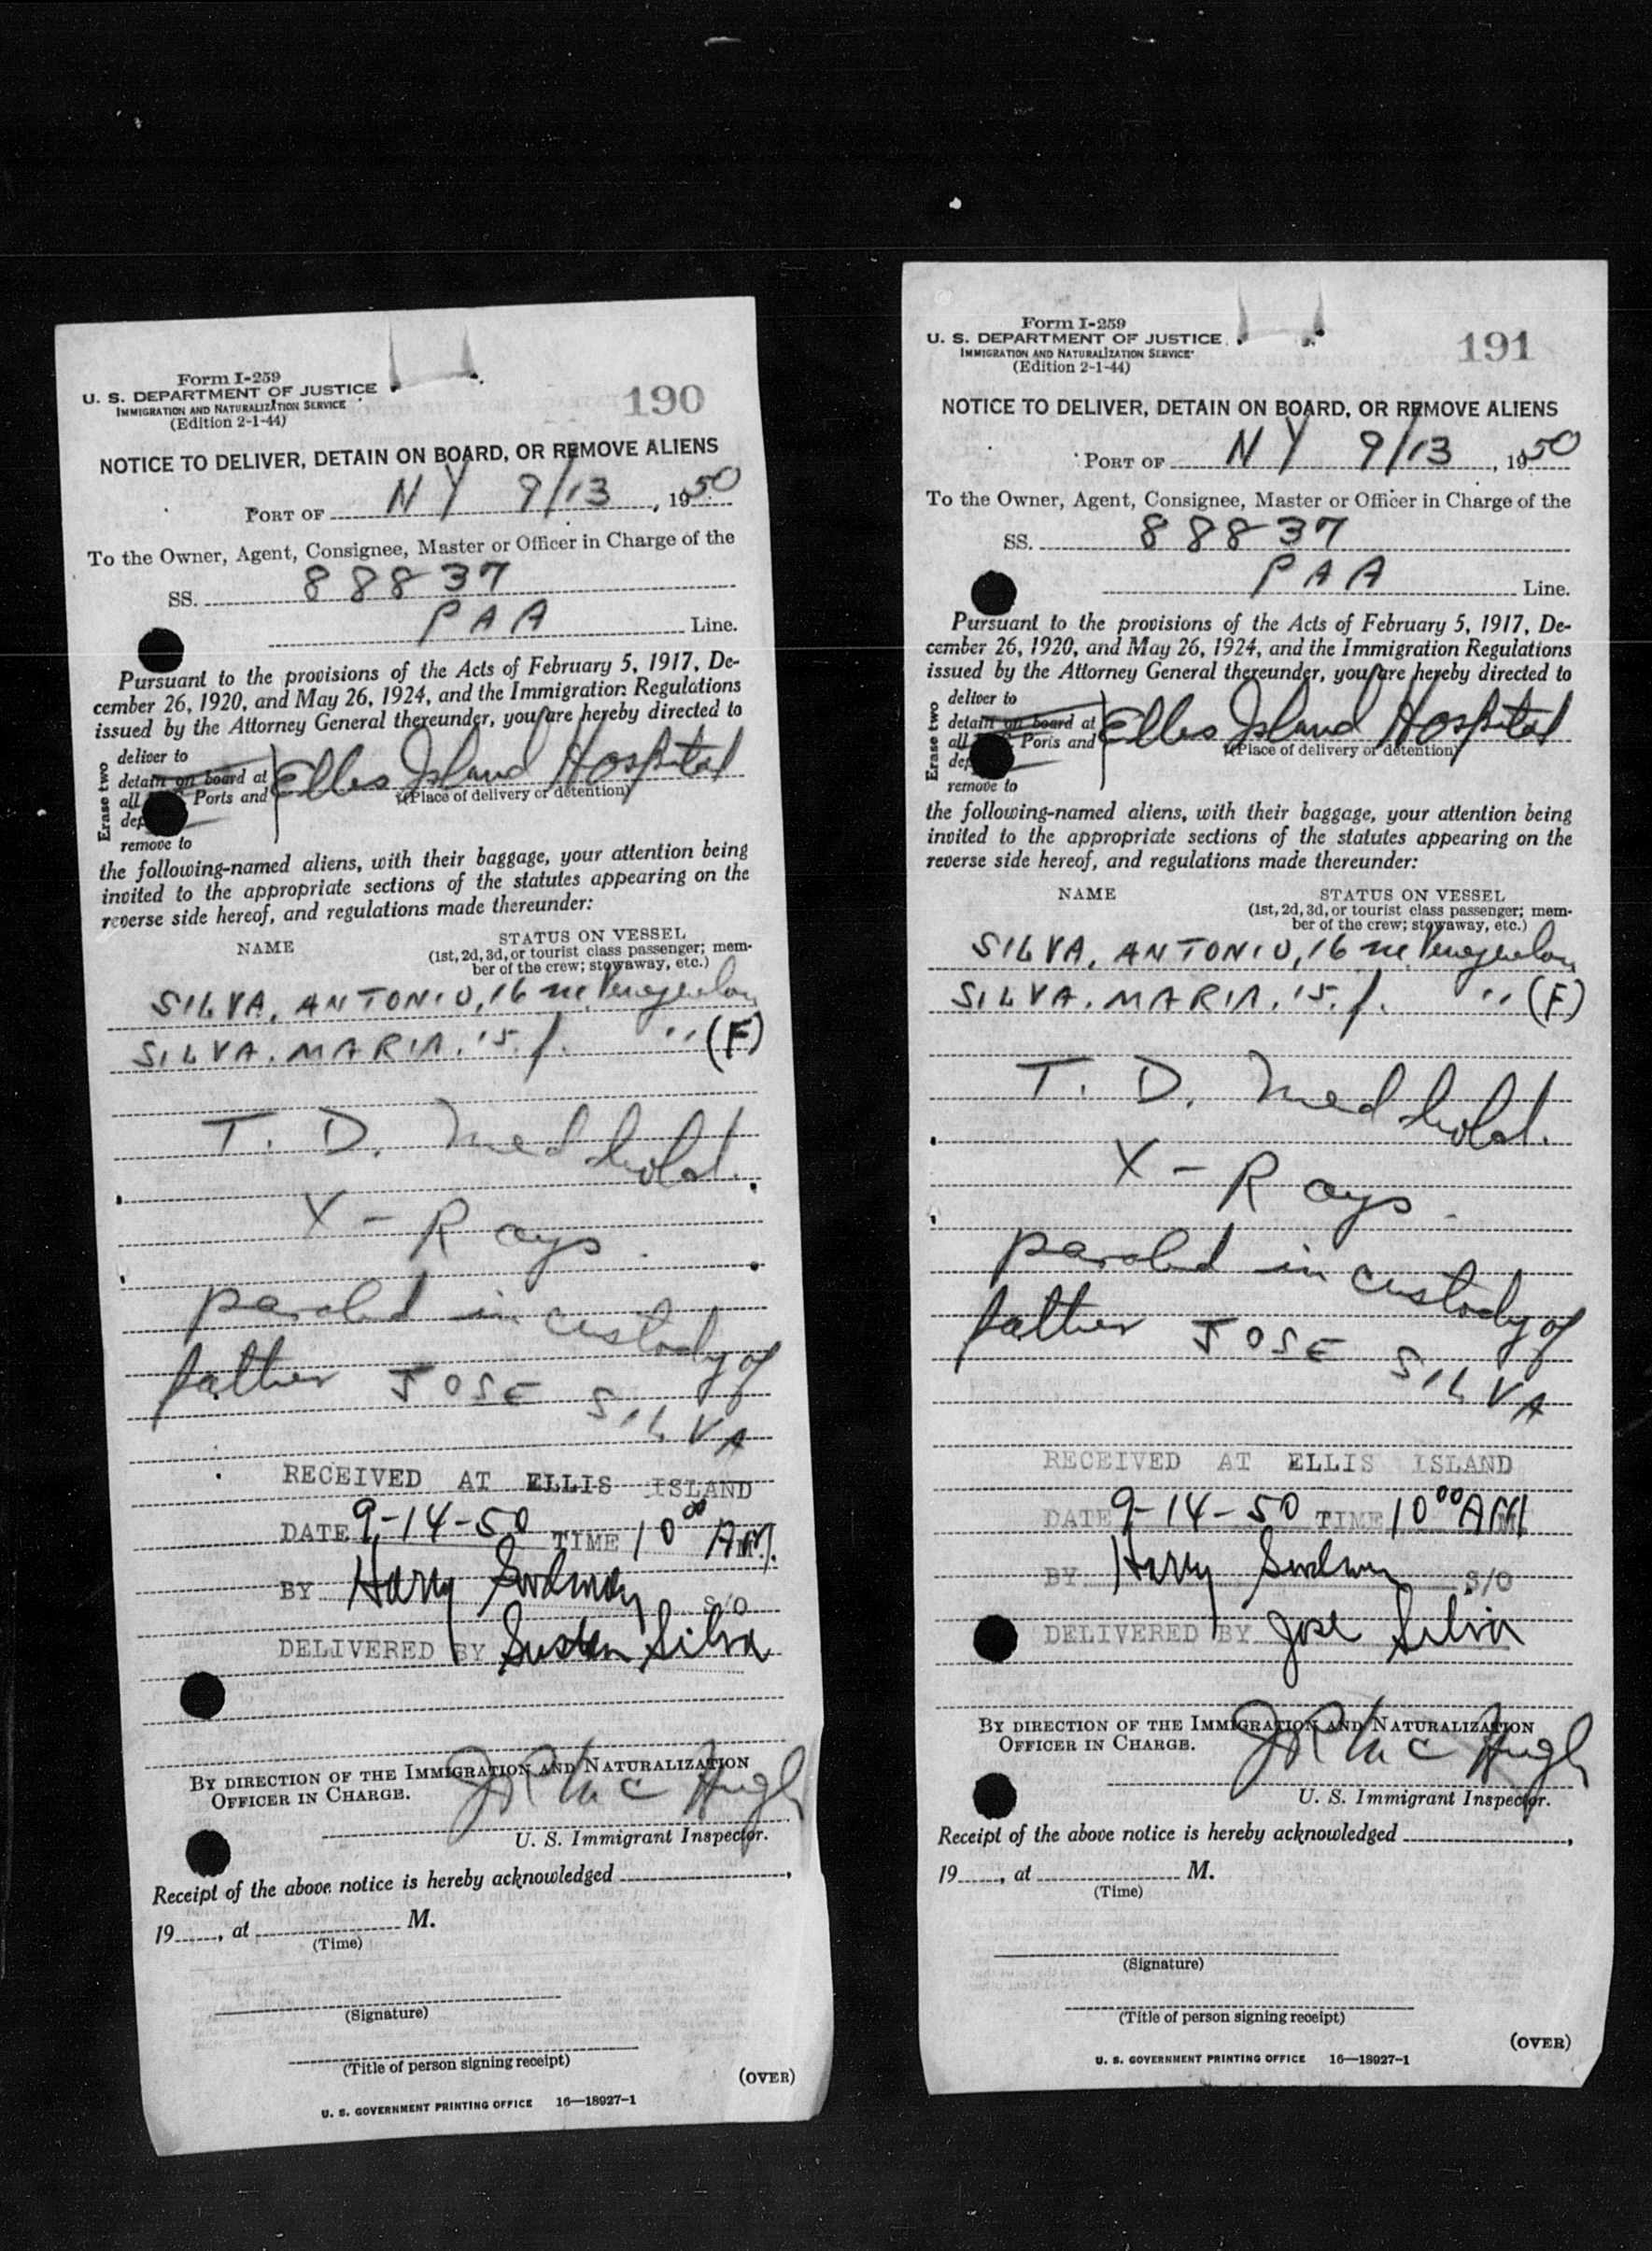 Form I-259
U. S. DEPARTMENT OF JUSTICE
IMMIGRATION AND NATURALIZATION SERVICE
(Edition 2-1-44)
190
NOTICE TO DELIVER, DETAIN ON BOARD, OR REMOVE ALIENS
PORT OF NY 9/13, 1950
To the Owner, Agent, Consignee, Master or Officer in Charge of the
SS. 88837
PAA Line.
Pursuant to the provisions of the Acts of February 5, 1917, De-
cember 26, 1920, and May 26, 1924, and the Immigration Regulations
issued by the Attorney General thereunder, you are hereby directed to
Erase two
deliver to
detain on board at
all Ports and
remove to
Ellis Island Hospital
(Place of delivery or detention)
the following-named aliens, with their baggage, your attention being
invited to the appropriate sections of the statutes appearing on the
reverse side hereof, and regulations made thereunder:
NAME
STATUS ON VESSEL
(1st, 2d, 3d, or tourist class passenger; mem-
ber of the crew; stowaway, etc.)
SILVA, ANTONIO, 16 m. Venezuelan
SILVA. MARIA. 15. f. " (F)
T. D. Med hold.
X-Rays.
paroled in custody of
father JOSE SILVA
RECEIVED AT ELLIS ISLAND
DATE 9-14-50 TIME 10 00 AM.
BY Harry S/O
DELIVERED BY Silva
BY DIRECTION OF THE IMMIGRATION AND NATURALIZATION
OFFICER IN CHARGE.
JR McHugh
U. S. Immigrant Inspector.
Receipt of the above notice is hereby acknowledged ,
19 , at M.
(Time)
(Signature)
(Title of person signing receipt)
(OVER)
U. S. GOVERNMENT PRINTING OFFICE 16—18927-1
Form I-259
U. S. DEPARTMENT OF JUSTICE
IMMIGRATION AND NATURALIZATION SERVICE
(Edition 2-1-44)
191
NOTICE TO DELIVER, DETAIN ON BOARD, OR REMOVE ALIENS
PORT OF NY 9/13, 1950
To the Owner, Agent, Consignee, Master or Officer in Charge of the
SS. 88837
PAA Line.
Pursuant to the provisions of the Acts of February 5, 1917, De-
cember 26, 1920, and May 26, 1924, and the Immigration Regulations
issued by the Attorney General thereunder, you are hereby directed to
Erase two
deliver to
detain on board at
all Ports and
remove to
Ellis Island Hospital
(Place of delivery or detention)
the following-named aliens, with their baggage, your attention being
invited to the appropriate sections of the statutes appearing on the
reverse side hereof, and regulations made thereunder:
NAME
STATUS ON VESSEL
(1st, 2d, 3d, or tourist class passenger; mem-
ber of the crew; stowaway, etc.)
SILVA, ANTONIO, 16 m. Venezuelan
SILVA. MARIA. 15. f. " (F)
T. D. Med hold.
X-Rays.
paroled in custody of
father JOSE SILVA
RECEIVED AT ELLIS ISLAND
DATE 9-14-50 TIME 10 00 AM
BY Harry S/O
DELIVERED BY Jose Silva
BY DIRECTION OF THE IMMIGRATION AND NATURALIZATION
OFFICER IN CHARGE.
JR McHugh
U. S. Immigrant Inspector.
Receipt of the above notice is hereby acknowledged ,
19 , at M.
(Time)
(Signature)
(Title of person signing receipt)
(OVER)
U. S. GOVERNMENT PRINTING OFFICE 16—18927-1